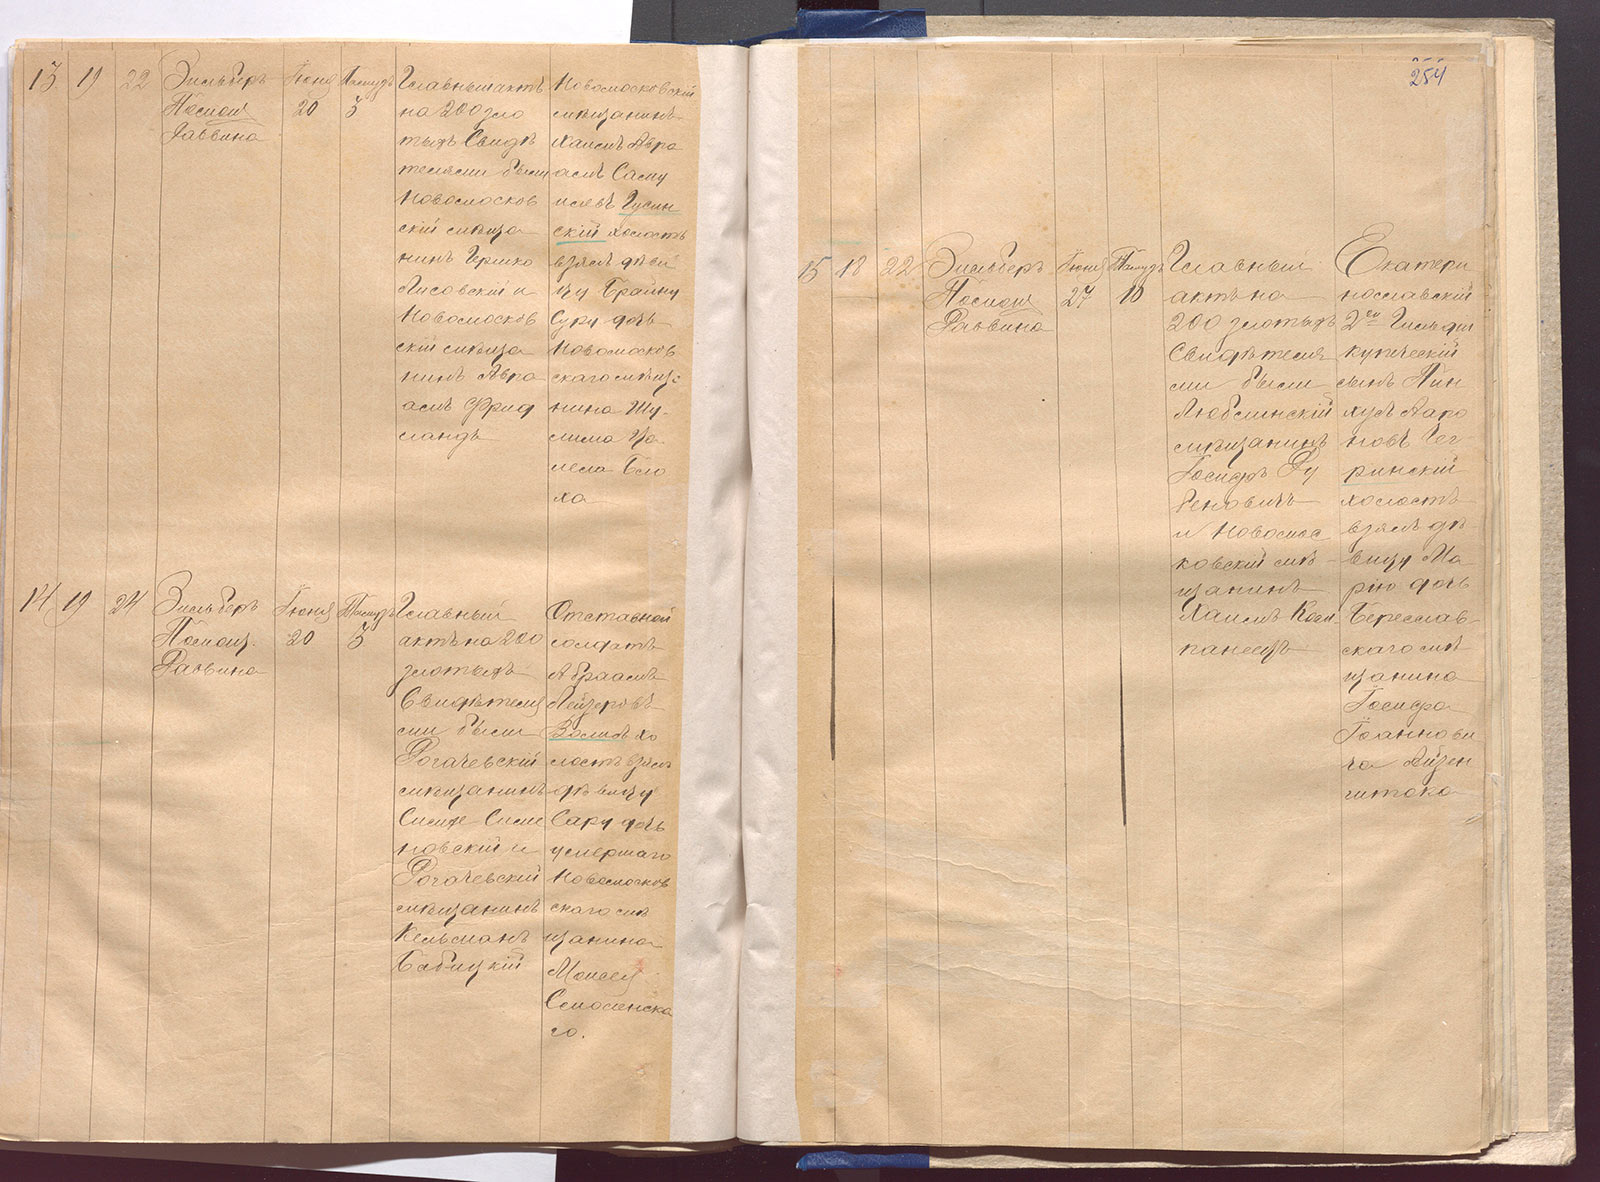 13 19 22
Зильберъ
Помощ
Раввина
Іюня
20
Тамузъ
3
Главный актъ
на 200 зло
тыхъ Свидѣ
телями были
Новомосков
скій мѣща
нинъ Гершко
Лисовскій и
Новомосков
скій мѣща
нинъ Авра
амъ Фрид
ландъ
Новомосковскій
мѣщанинъ
Хаимъ Авра
амъ Саму
илевъ Гусин
скій холостъ
взялъ дѣви
цу Брайну
Суру дочь
Новомосков
скаго мѣщ
нина Шу-
лима
Бло
ха
14 19 24
Зильберъ
Помощ.
Раввина
Іюня
20
Тамузъ
3
Главный
актъ на 200
злотыхъ
Свидѣтеля
ми были
Рогачевскій
мѣщанинъ
новскій и
Рогачевскій
мѣщанинъ
Кельманъ
Бабицкій
Отставной
солдатъ
Абраамъ
Лейзеровъ
хо
лостъ взялъ
дѣвицу
Сару дочь
умершаго
Новомосков
скаго мѣ
щанина
Моисея
Смоленска
го.
254
15 18 22
Зильберъ
Помощ
Раввина
Іюня
27
Тамузъ
10
Главный
актъ на
200 злотыхъ
Свидѣтеля
ми были
Люблинскій
мѣщанинъ
Іосифъ Ру
беновичъ
и Новомос
ковскій мѣ
щанинъ
Хаимъ Ком
панеецъ
Екатери
нославскій
2ой Гильдіи
купеческій
сынъ Пин
хусъАаро
новъ Чег-
ринскій
холостъ
взялъ дѣ
вицу Ма
рію дочь
Береслав-
скаго мѣ
щанина
Іосифа
Іоаннови
ча Айзен
штока